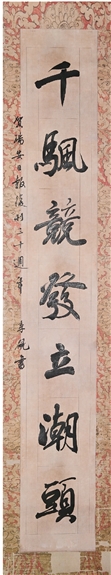 千颿競發立潮頭
賀瑞安日報復刊二十週年 李凡書